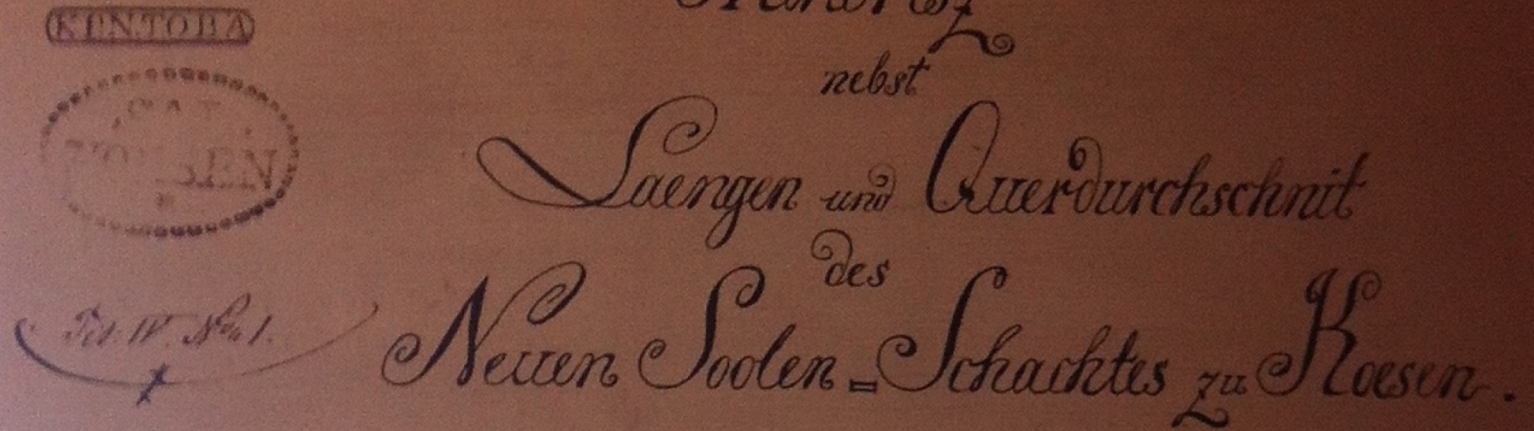 nebst
Laengen und Querdurchschnit
des
Neuen Soolen=Schachtes zu Koesen.